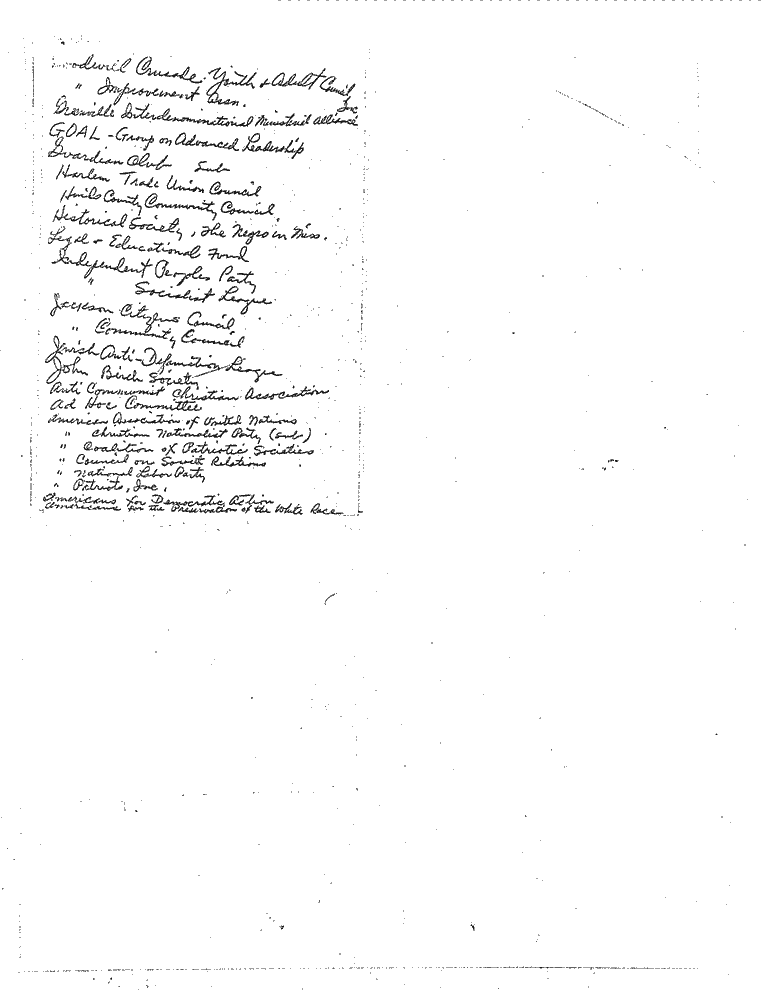 Goodwill Crusade Youth & Adult Council, Inc
" Improvement Assn.
Greenville Interdenominational Ministerial Alliance
GOAL - Group on Advanced Leadership
Guardian Club Sub
Harlem Trade Union Council
Hinds County Community Council
Historical Society, The Negro in Miss.
Legal & Educational Fund
Independent Peoples Party
" Socialist League
Jackson Citizens Council
" Community Council
Jewish Anti-Defamation League
John Birch Society
Anti Communist Christian Association
Ad Hoc Committee
American Association of United Nations
" Christian Nationalist Party (sub)
" Coalition of Patriotic Societies
" Council on Soviet Relations
" National Labor Party
" Patriots, Inc.
Americans for Democratic Action
Americans for the Preservation of the White Race